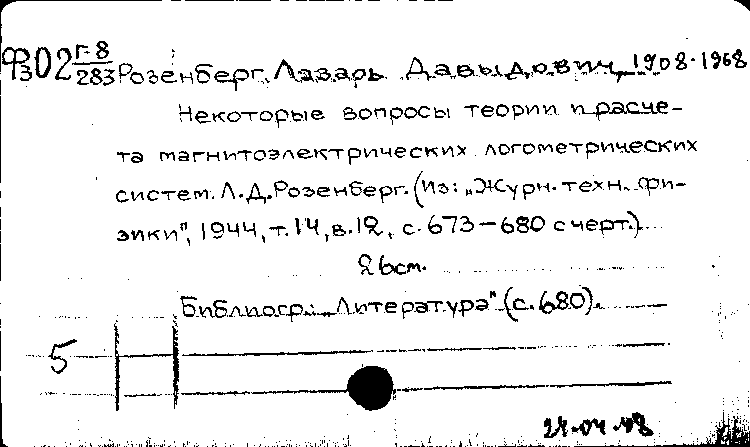 Ф302 Г-8/283 Розенберг, Лазарь Давыдович, 1908-1968
Некоторые вопросы теории и расче-
та магнитоэлектрических логометрических
систем. Л.Д.Розенберг. (Из: „Журн. техн. фи-
зики", 1944, т.14, в.12, с.673-680 с черт.).
26см.
Библиогр.: „Литература" (с.680).
5